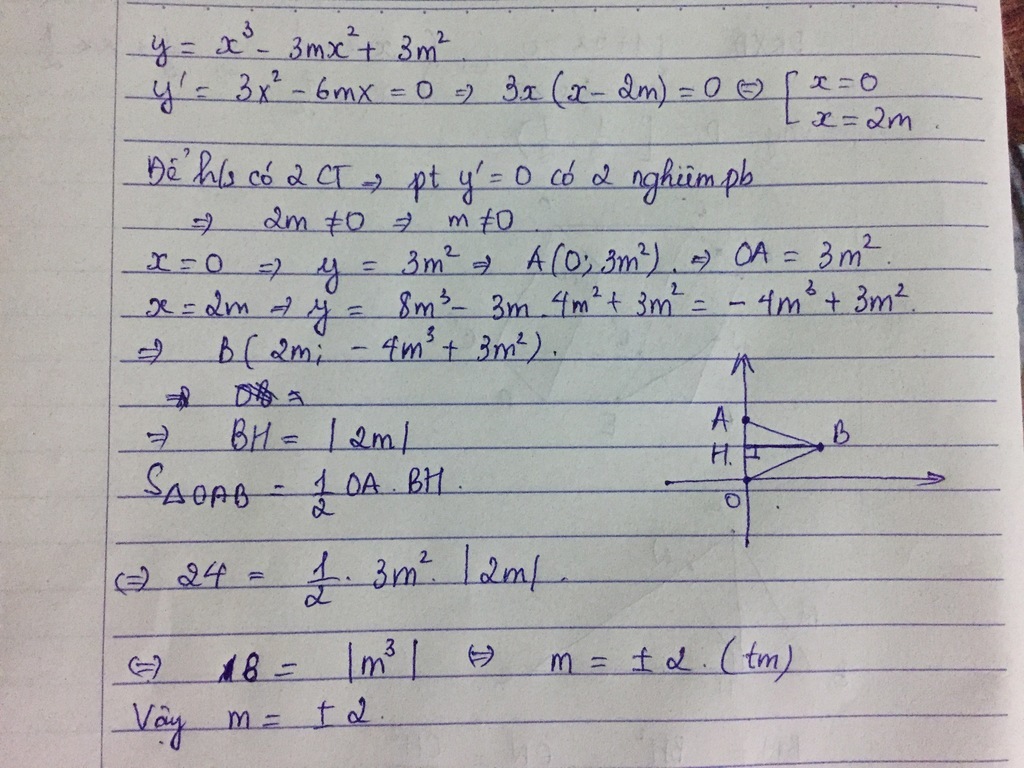 y = x³ - 3mx² + 3m²
y' = 3x² - 6mx = 0 ⇒ 3x(x - 2m) = 0 ⇔ [ x = 0
x = 2m.
Để h/s có 2 CT ⇒ pt y' = 0 có 2 nghiệm pb
⇒ 2m ≠ 0 ⇒ m ≠ 0
x = 0 ⇒ y = 3m² ⇒ A(0; 3m²). ⇒ OA = 3m².
x = 2m ⇒ y = 8m³ - 3m.4m² + 3m² = - 4m³ + 3m².
⇒ B(2m; - 4m³ + 3m²).
⇒ BH = |2m|
S△OAB = 1/2 OA.BH.
A
B
H.
O
⇔ 24 = 1/2. 3m². |2m|.
⇔ 8 = |m³| ⇔ m = ± 2. (tm)
Vậy m = ± 2.